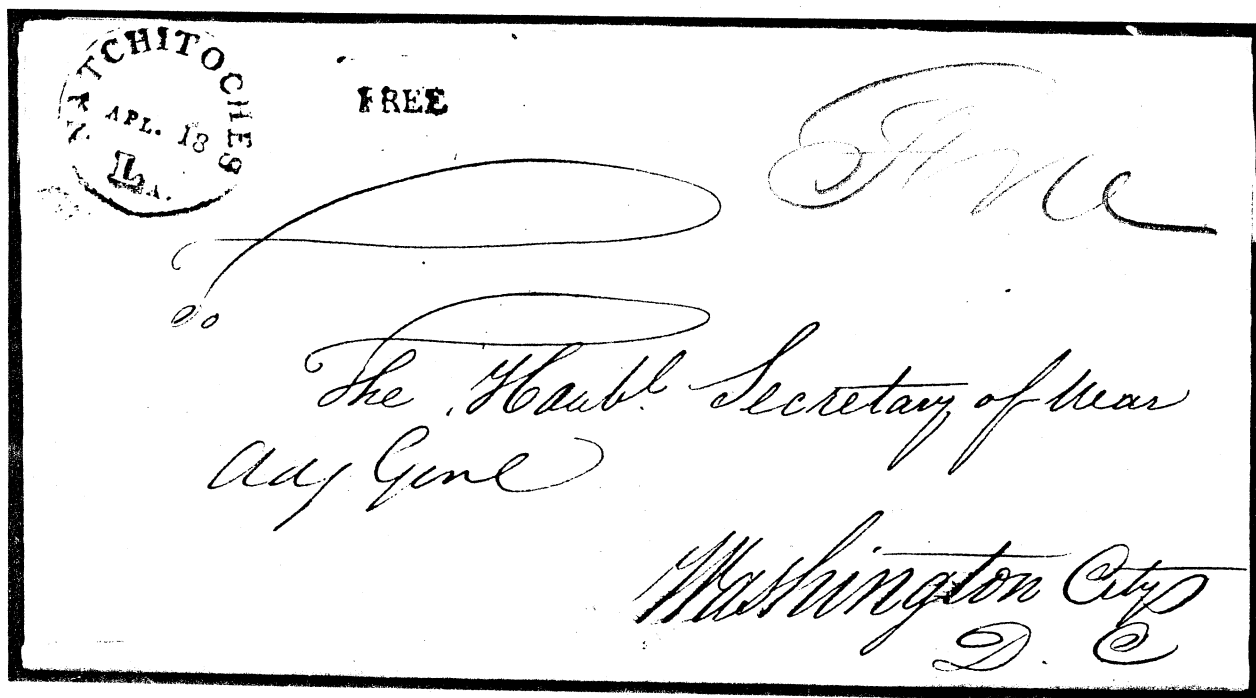 NATCHITOCHES
APL. 18
LA.
FREE
Free
To
The Honbl. Secretary of War
Adj Genl
Washington City
D. C